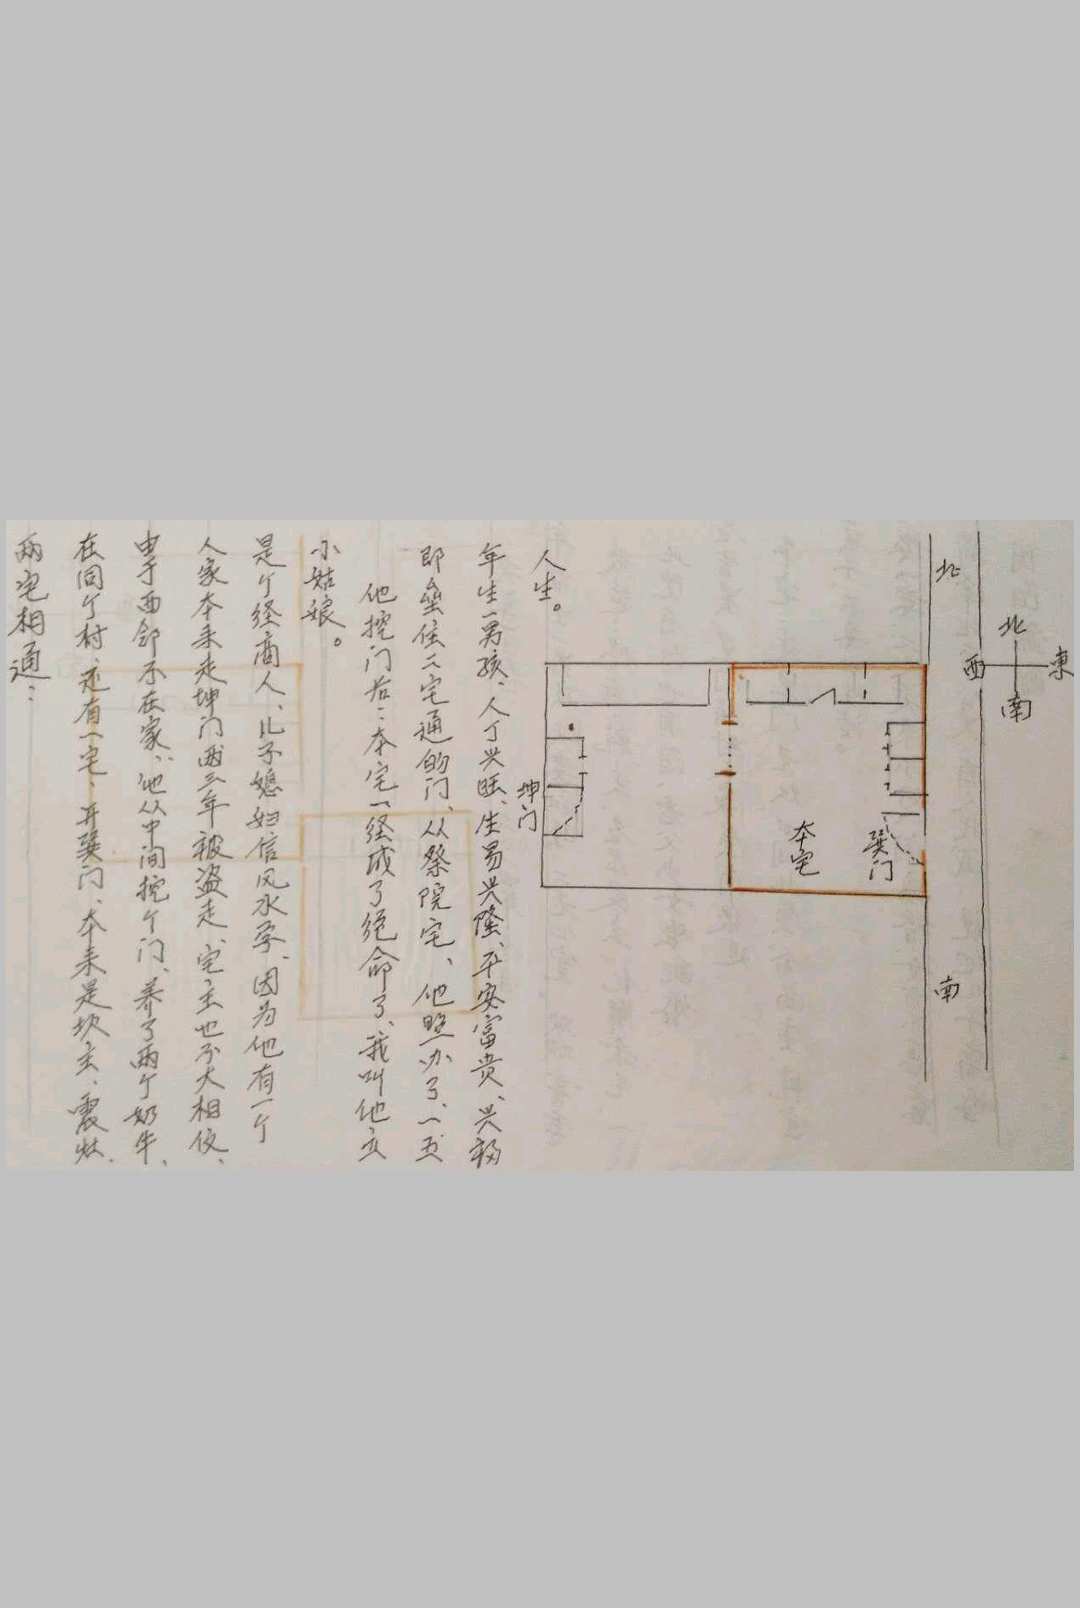 两宅相通：
在同个村、还有一宅、开巽门、本来是坎主、震灶、
由于西邻不在家、他从中间挖个门、养了两个奶牛、
人家本来走坤门两三年被盗走、宅主也不大相信、
是个经商人、儿子媳妇信风水孕、因为他有一个
小姑娘。
他挖门后：本宅一经成了绝命了、我叫他立
即垒住二宅通的门、从祭院宅、他照办了、一五
年生一男孩、人丁兴旺、生易兴隆、平安富贵、兴福
人生。
坤门
本宅
巽门
北
南
北
西
東
南